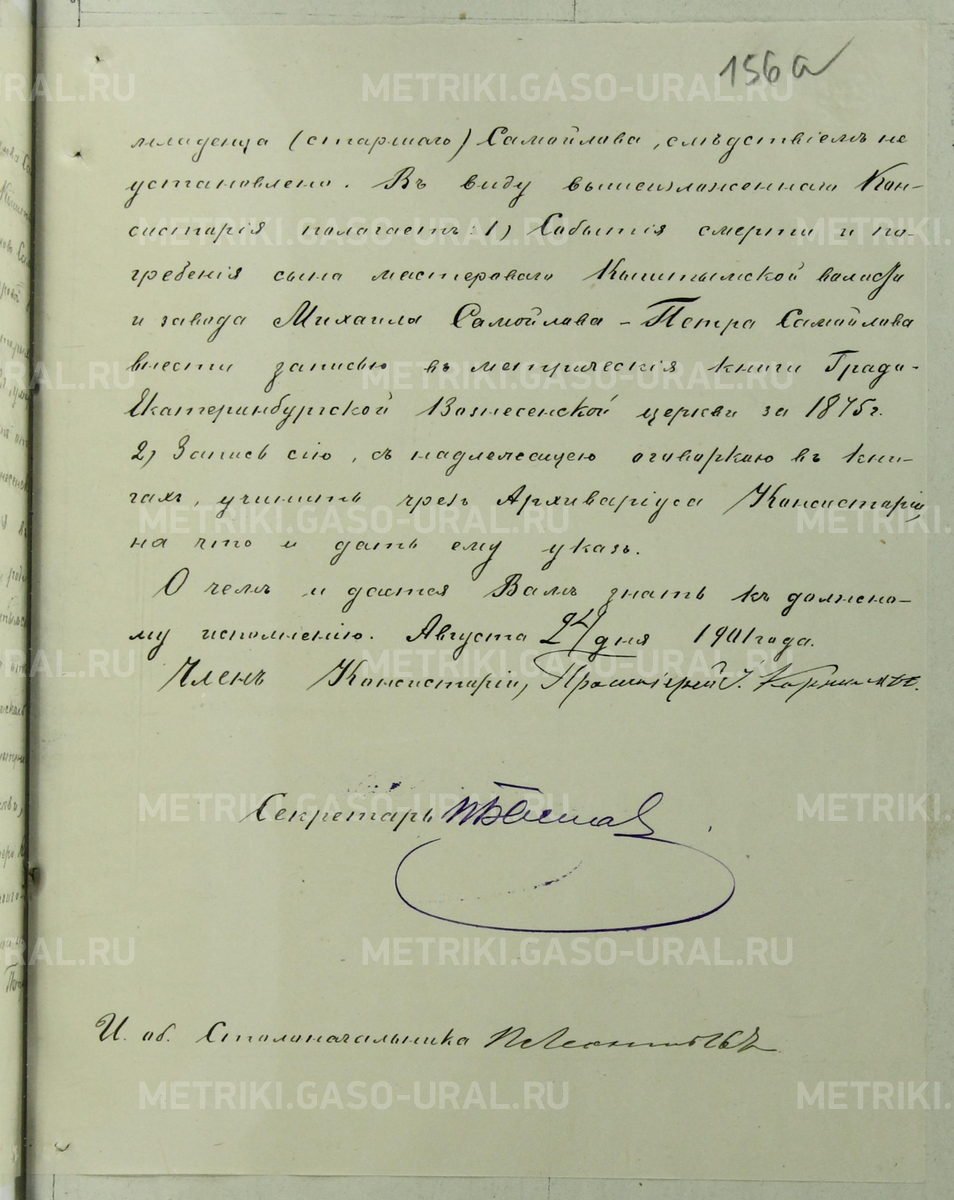 156а
младенца (старшаго) Самойлова, слѣдствіемъ не
установлено. Въ виду вышеизложеннаго Кон-
систорія полагаетъ: 1) Событія смерти и по-
гребенія сына мастероваго Кыштымской волости
и завода Михаила Самойлова – Петра Самойлова
внести записью въ метрическія книги Градо-
Екатеринбургской Вознесенской церкви за 1875 г.
2) Запись сію, съ надлежащею оговоркою въ кни-
гахъ, учинить чрезъ Архиваріуса Консисторіи,
на что и дать ему указъ.
О чемъ и дается Вамъ знать къ должно-
му исполненію. Августа 24 дня 1901 года.
Членъ Консисторіи, Протоіерей І.
Секретарь
И. об. Столоначальника П. Леонтьевъ
METRIKI.GASO-URAL.RU